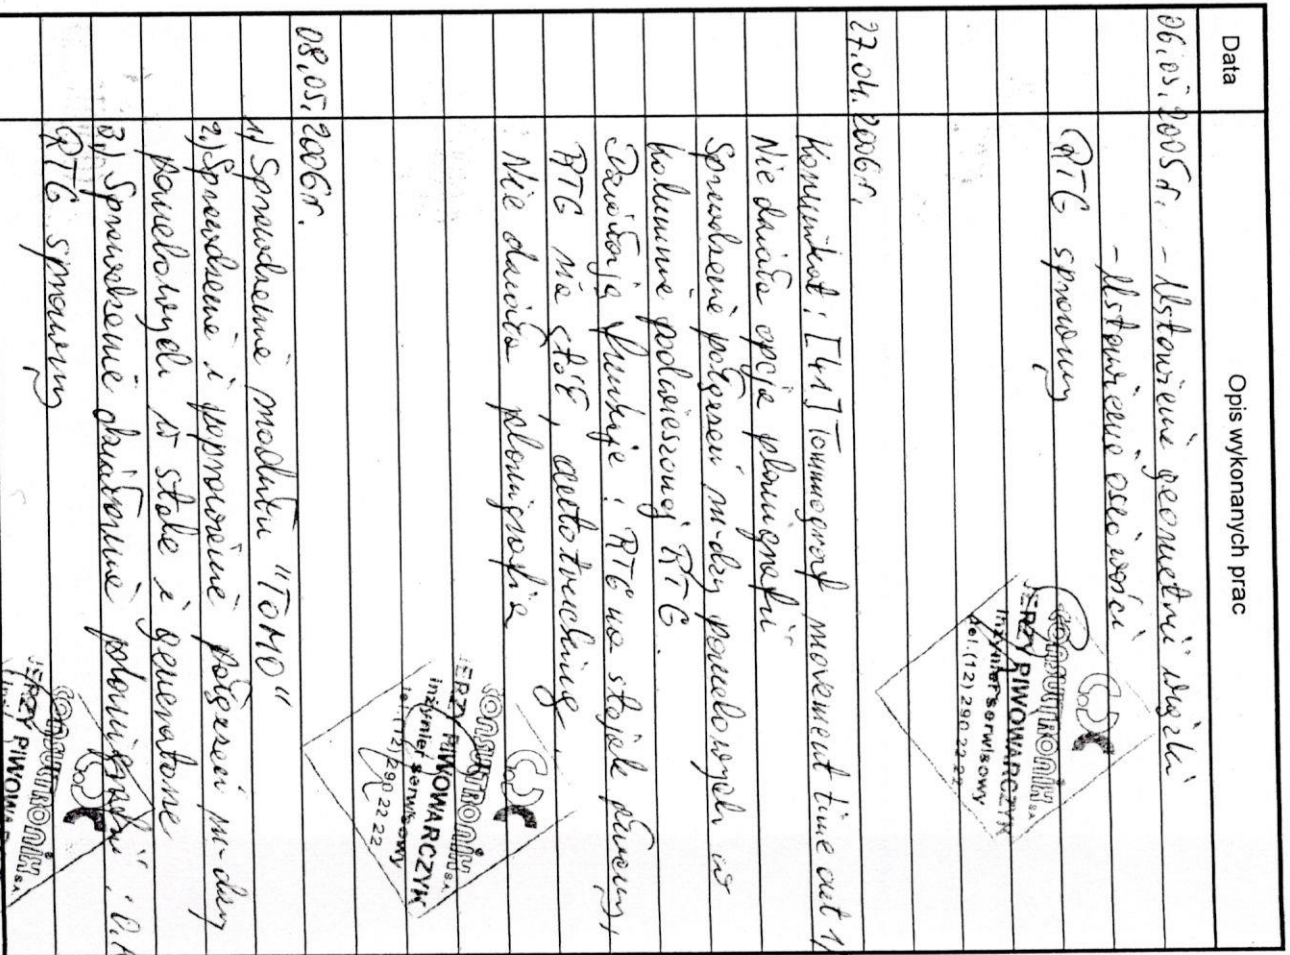 Data Opis wykonanych prac
06.05.2005r. - Ustawienie geometrii wiązki
- Ustawienie osiowości
RTG sprawny
CONSULTRONIK S.A.
JERZY PIWOWARCZYK
inżynier serwisowy
tel.(12) 290 22 22
27.04.2006r.
Komunikat: [41] Tommograf movement time out
Nie działa opcja planigrafii
Sprawdzenie połączeń m-dzy panelowych w
kolumnie podwieszonej RTG.
Działają funkcje: RTG na stojak płucny,
RTG na stół, autotracking.
Nie działa planigrafia
CONSULTRONIK S.A.
JERZY PIWOWARCZYK
inżynier serwisowy
tel.(12) 290 22 22
08.05.2006r.
1) Sprawdzenie modułu "TOMO"
2.) Sprawdzenie i poprawienie połączeń m-dzy
panelowych w stole i generatorze
3.) Sprawdzenie działanie planigrafii.
RTG sprawny
CONSULTRONIK S.A.
JERZY PIWOWAR